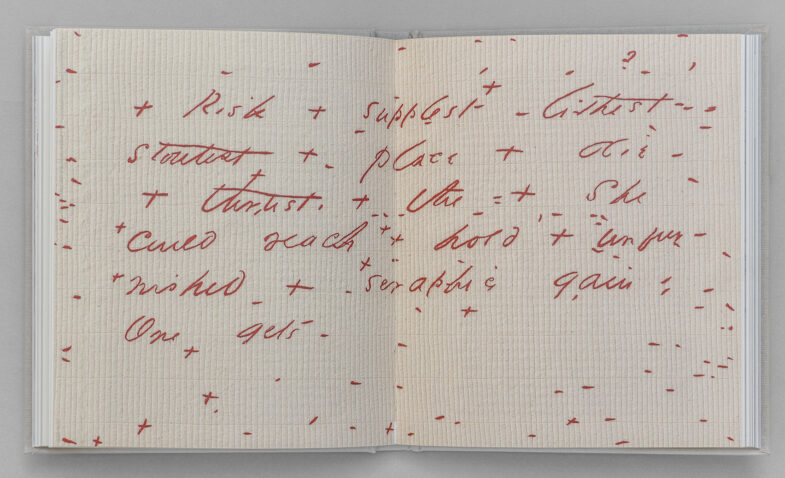 + Risk + supplest - lithest - -
stoutest + place + die -
+ thrust. + the - = + She
+ could reach + + hold + unfur-
+ nished - + - seraphic gain :
One gets -